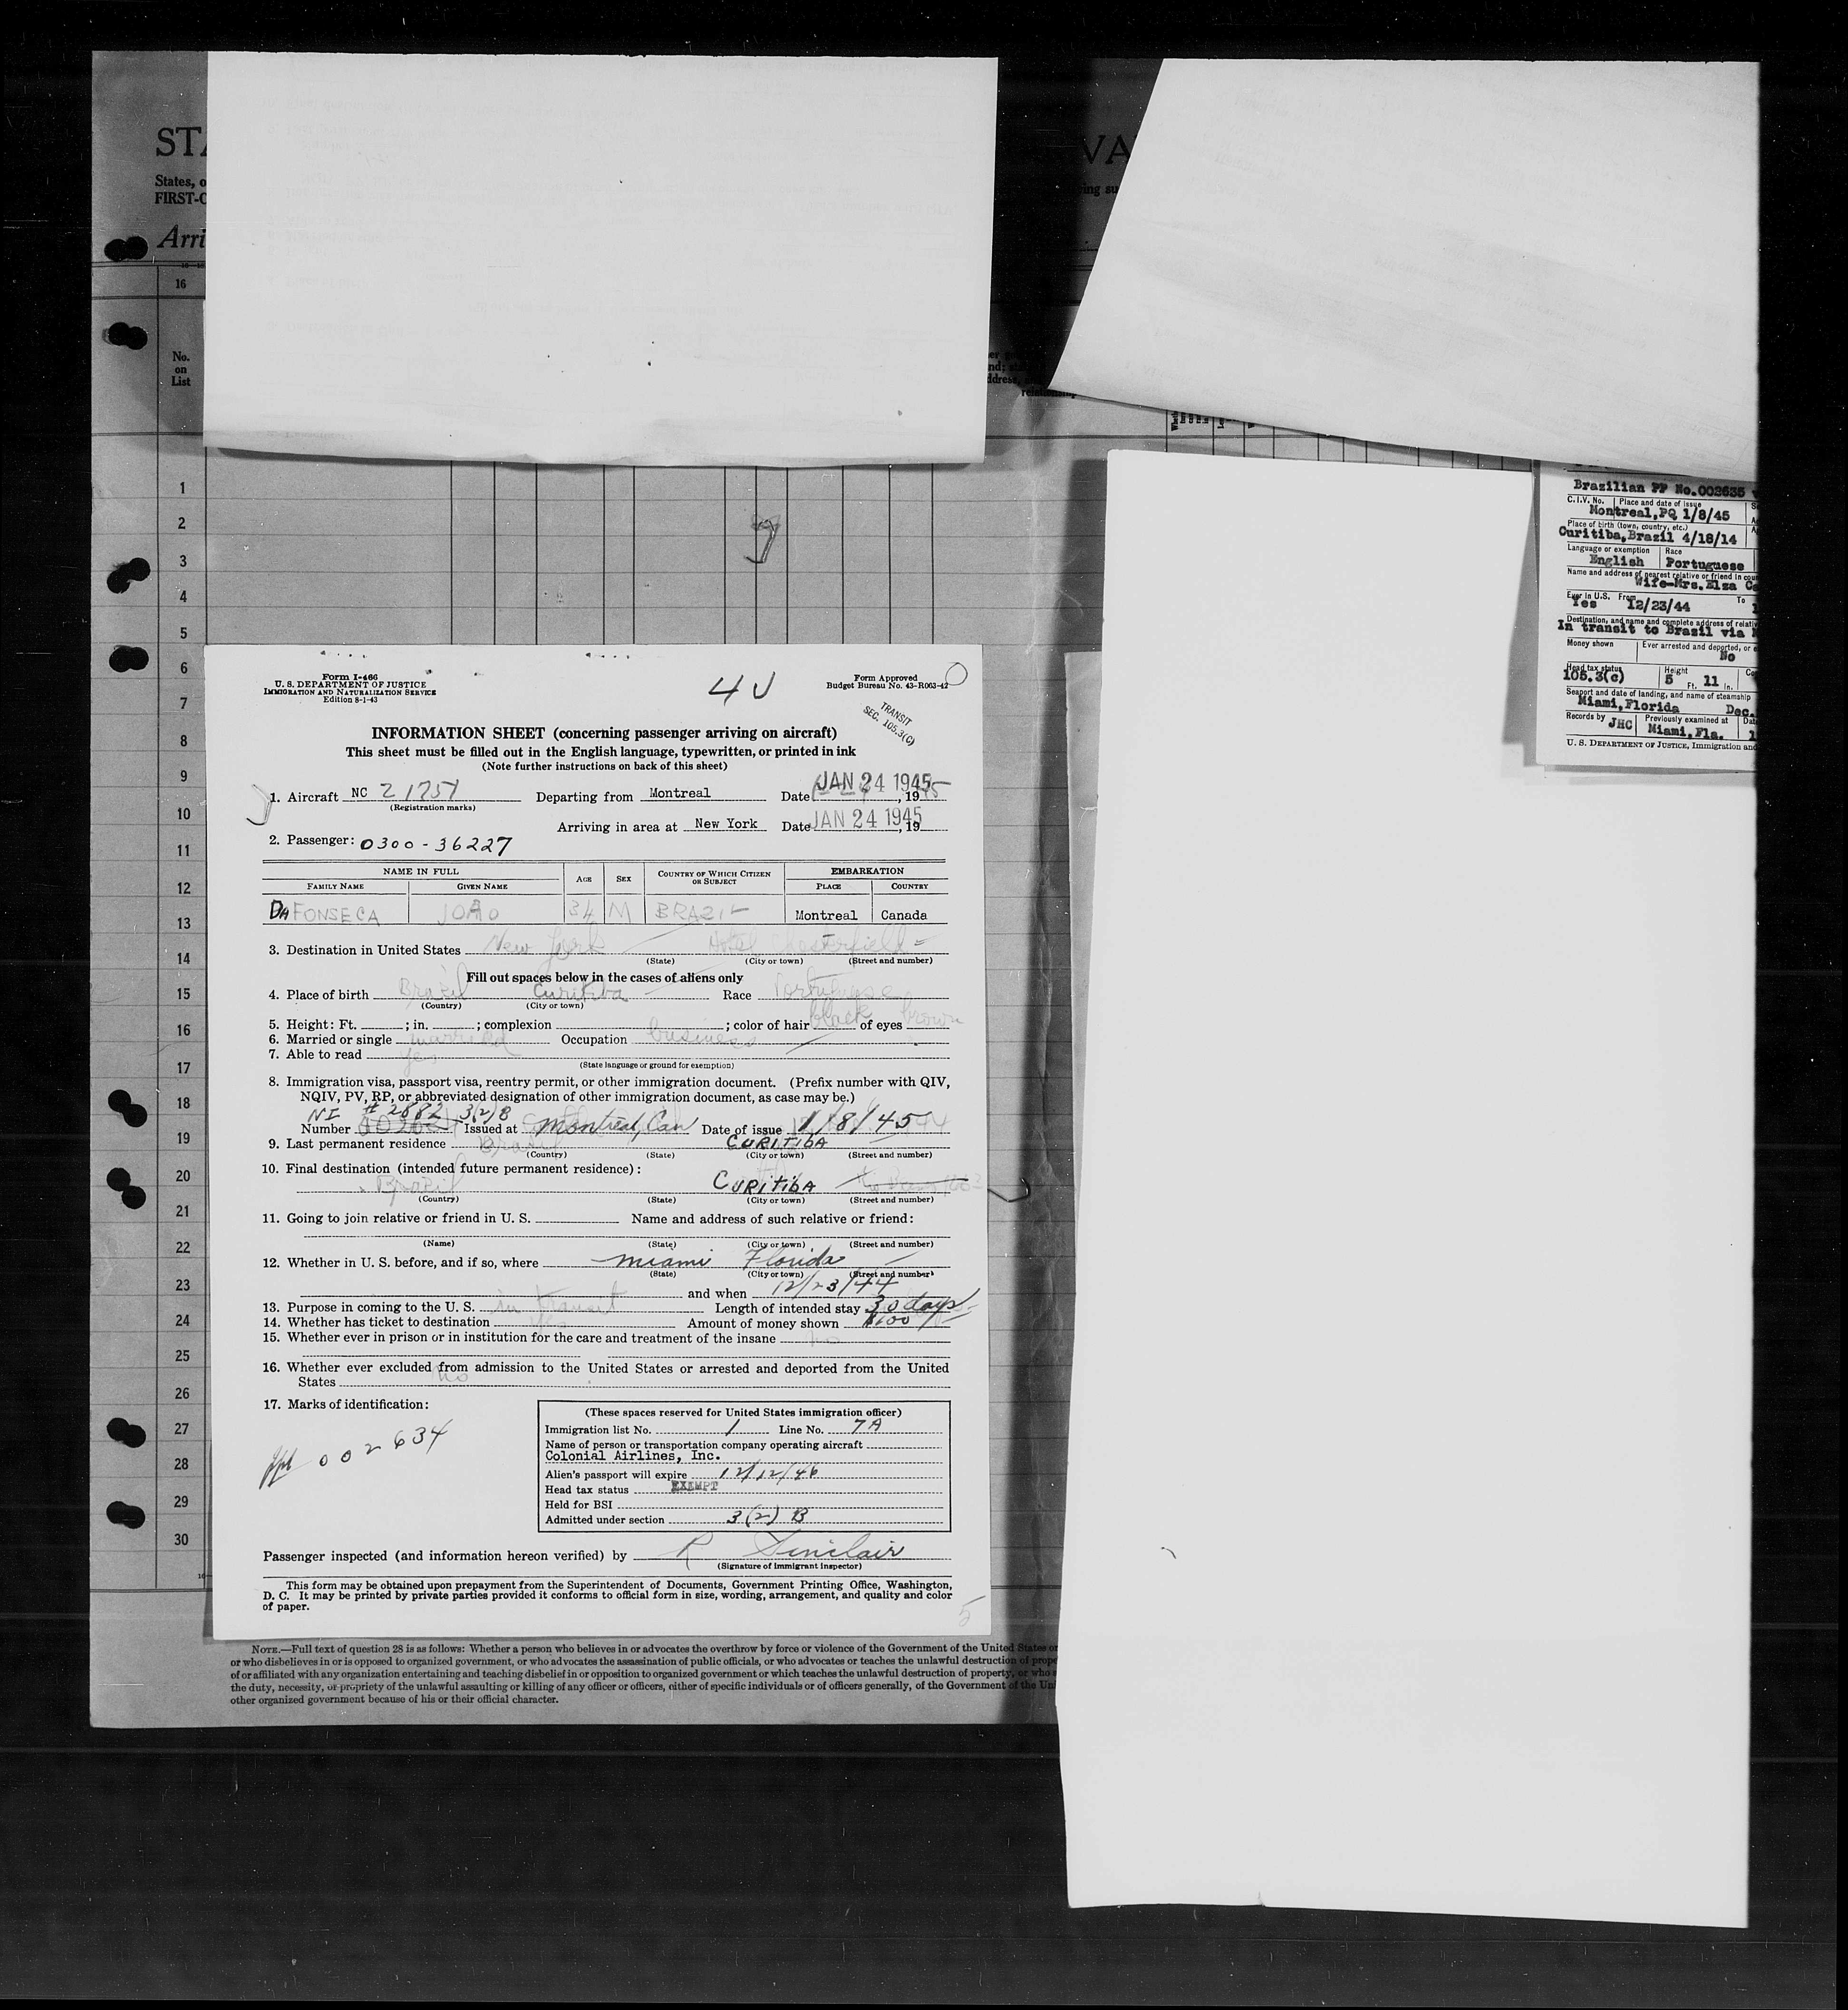 STA
VA
States, o
FIRST-C
ing su
Arri
16
No.
on
List
1
2
3
4
5
6
7
8
9
10
11
12
13
14
15
16
17
18
19
20
21
22
23
24
25
26
27
28
29
30
Form I-466
U. S. DEPARTMENT OF JUSTICE
IMMIGRATION AND NATURALIZATION SERVICE
Edition 8-1-43
Form Approved
Budget Bureau No. 43-R063-42
TRANSIT
SEC. 105.3(C)
INFORMATION SHEET (concerning passenger arriving on aircraft)
This sheet must be filled out in the English language, typewritten, or printed in ink
(Note further instructions on back of this sheet)
1. Aircraft NC 21751 Departing from Montreal Date JAN 24 1945, 1945
(Registration marks)
Arriving in area at New York Date JAN 24 1945, 19
2. Passenger: 0300-36227
NAME IN FULL AGE SEX COUNTRY OF WHICH CITIZEN OR SUBJECT EMBARKATION
FAMILY NAME GIVEN NAME PLACE COUNTRY
DA FONSECA JOÃO 34 M BRAZIL Montreal Canada
3. Destination in United States New York Hotel Chesterfield
(State) (City or town) (Street and number)
Fill out spaces below in the cases of aliens only
4. Place of birth Brazil Curitiba Race Portuguese
(Country) (City or town)
5. Height: Ft. ; in. ; complexion ; color of hair black of eyes brown
6. Married or single married Occupation business
7. Able to read yes
(State language or ground for exemption)
8. Immigration visa, passport visa, reentry permit, or other immigration document. (Prefix number with QIV,
NQIV, PV, RP, or abbreviated designation of other immigration document, as case may be.)
NI # 2882 3(2)B
Number Issued at Montreal, Can Date of issue 1/8/45
9. Last permanent residence Brazil CURITIBA
(Country) (State) (City or town) (Street and number)
10. Final destination (intended future permanent residence):
Brazil CURITIBA
(Country) (State) (City or town) (Street and number)
11. Going to join relative or friend in U. S. Name and address of such relative or friend:
(Name) (State) (City or town) (Street and number)
12. Whether in U. S. before, and if so, where Miami Florida
(State) (City or town) (Street and number)
and when 12/23/44
13. Purpose in coming to the U. S. in transit Length of intended stay 30 days
14. Whether has ticket to destination yes Amount of money shown $600
15. Whether ever in prison or in institution for the care and treatment of the insane no
16. Whether ever excluded from admission to the United States or arrested and deported from the United
States no
17. Marks of identification:
ppt 002634
(These spaces reserved for United States immigration officer)
Immigration list No. 1 Line No. 7A
Name of person or transportation company operating aircraft
Colonial Airlines, Inc.
Alien's passport will expire 12/12/46
Head tax status EXEMPT
Held for BSI
Admitted under section 3(2) B
Passenger inspected (and information hereon verified) by R Sinclair
(Signature of immigrant inspector)
This form may be obtained upon prepayment from the Superintendent of Documents, Government Printing Office, Washington,
D. C. It may be printed by private parties provided it conforms to official form in size, wording, arrangement, and quality and color
of paper.
5
NOTE.—Full text of question 28 is as follows: Whether a person who believes in or advocates the overthrow by force or violence of the Government of the United States or
or who disbelieves in or is opposed to organized government, or who advocates the assassination of public officials, or who advocates or teaches the unlawful destruction of prope
of or affiliated with any organization entertaining and teaching disbelief in or opposition to organized government or which teaches the unlawful destruction of property, or who
the duty, necessity, or propriety of the unlawful assaulting or killing of any officer or officers, either of specific individuals or of officers generally, of the Government of the Uni
other organized government because of his or their official character.
Brazilian PP No.002635
C.I.V. No. Place and date of issue
Montreal,PQ 1/8/45
Place of birth (town, country, etc.)
Curitiba,Brazil 4/18/14
Language or exemption Race
English Portuguese
Name and address of nearest relative or friend in cou
Wife-Mrs.Elza
Ever in U.S. From To
Yes 12/23/44
Destination, and name and complete address of relativ
In transit to Brazil via
Money shown Ever arrested and deported, or e
No
Head tax status Height
105.3(c) 5 Ft. 11 in.
Seaport and date of landing, and name of steamship
Miami,Florida Dec.
Records by JHC Previously examined at
Miami,Fla.
U. S. DEPARTMENT OF JUSTICE, Immigration and